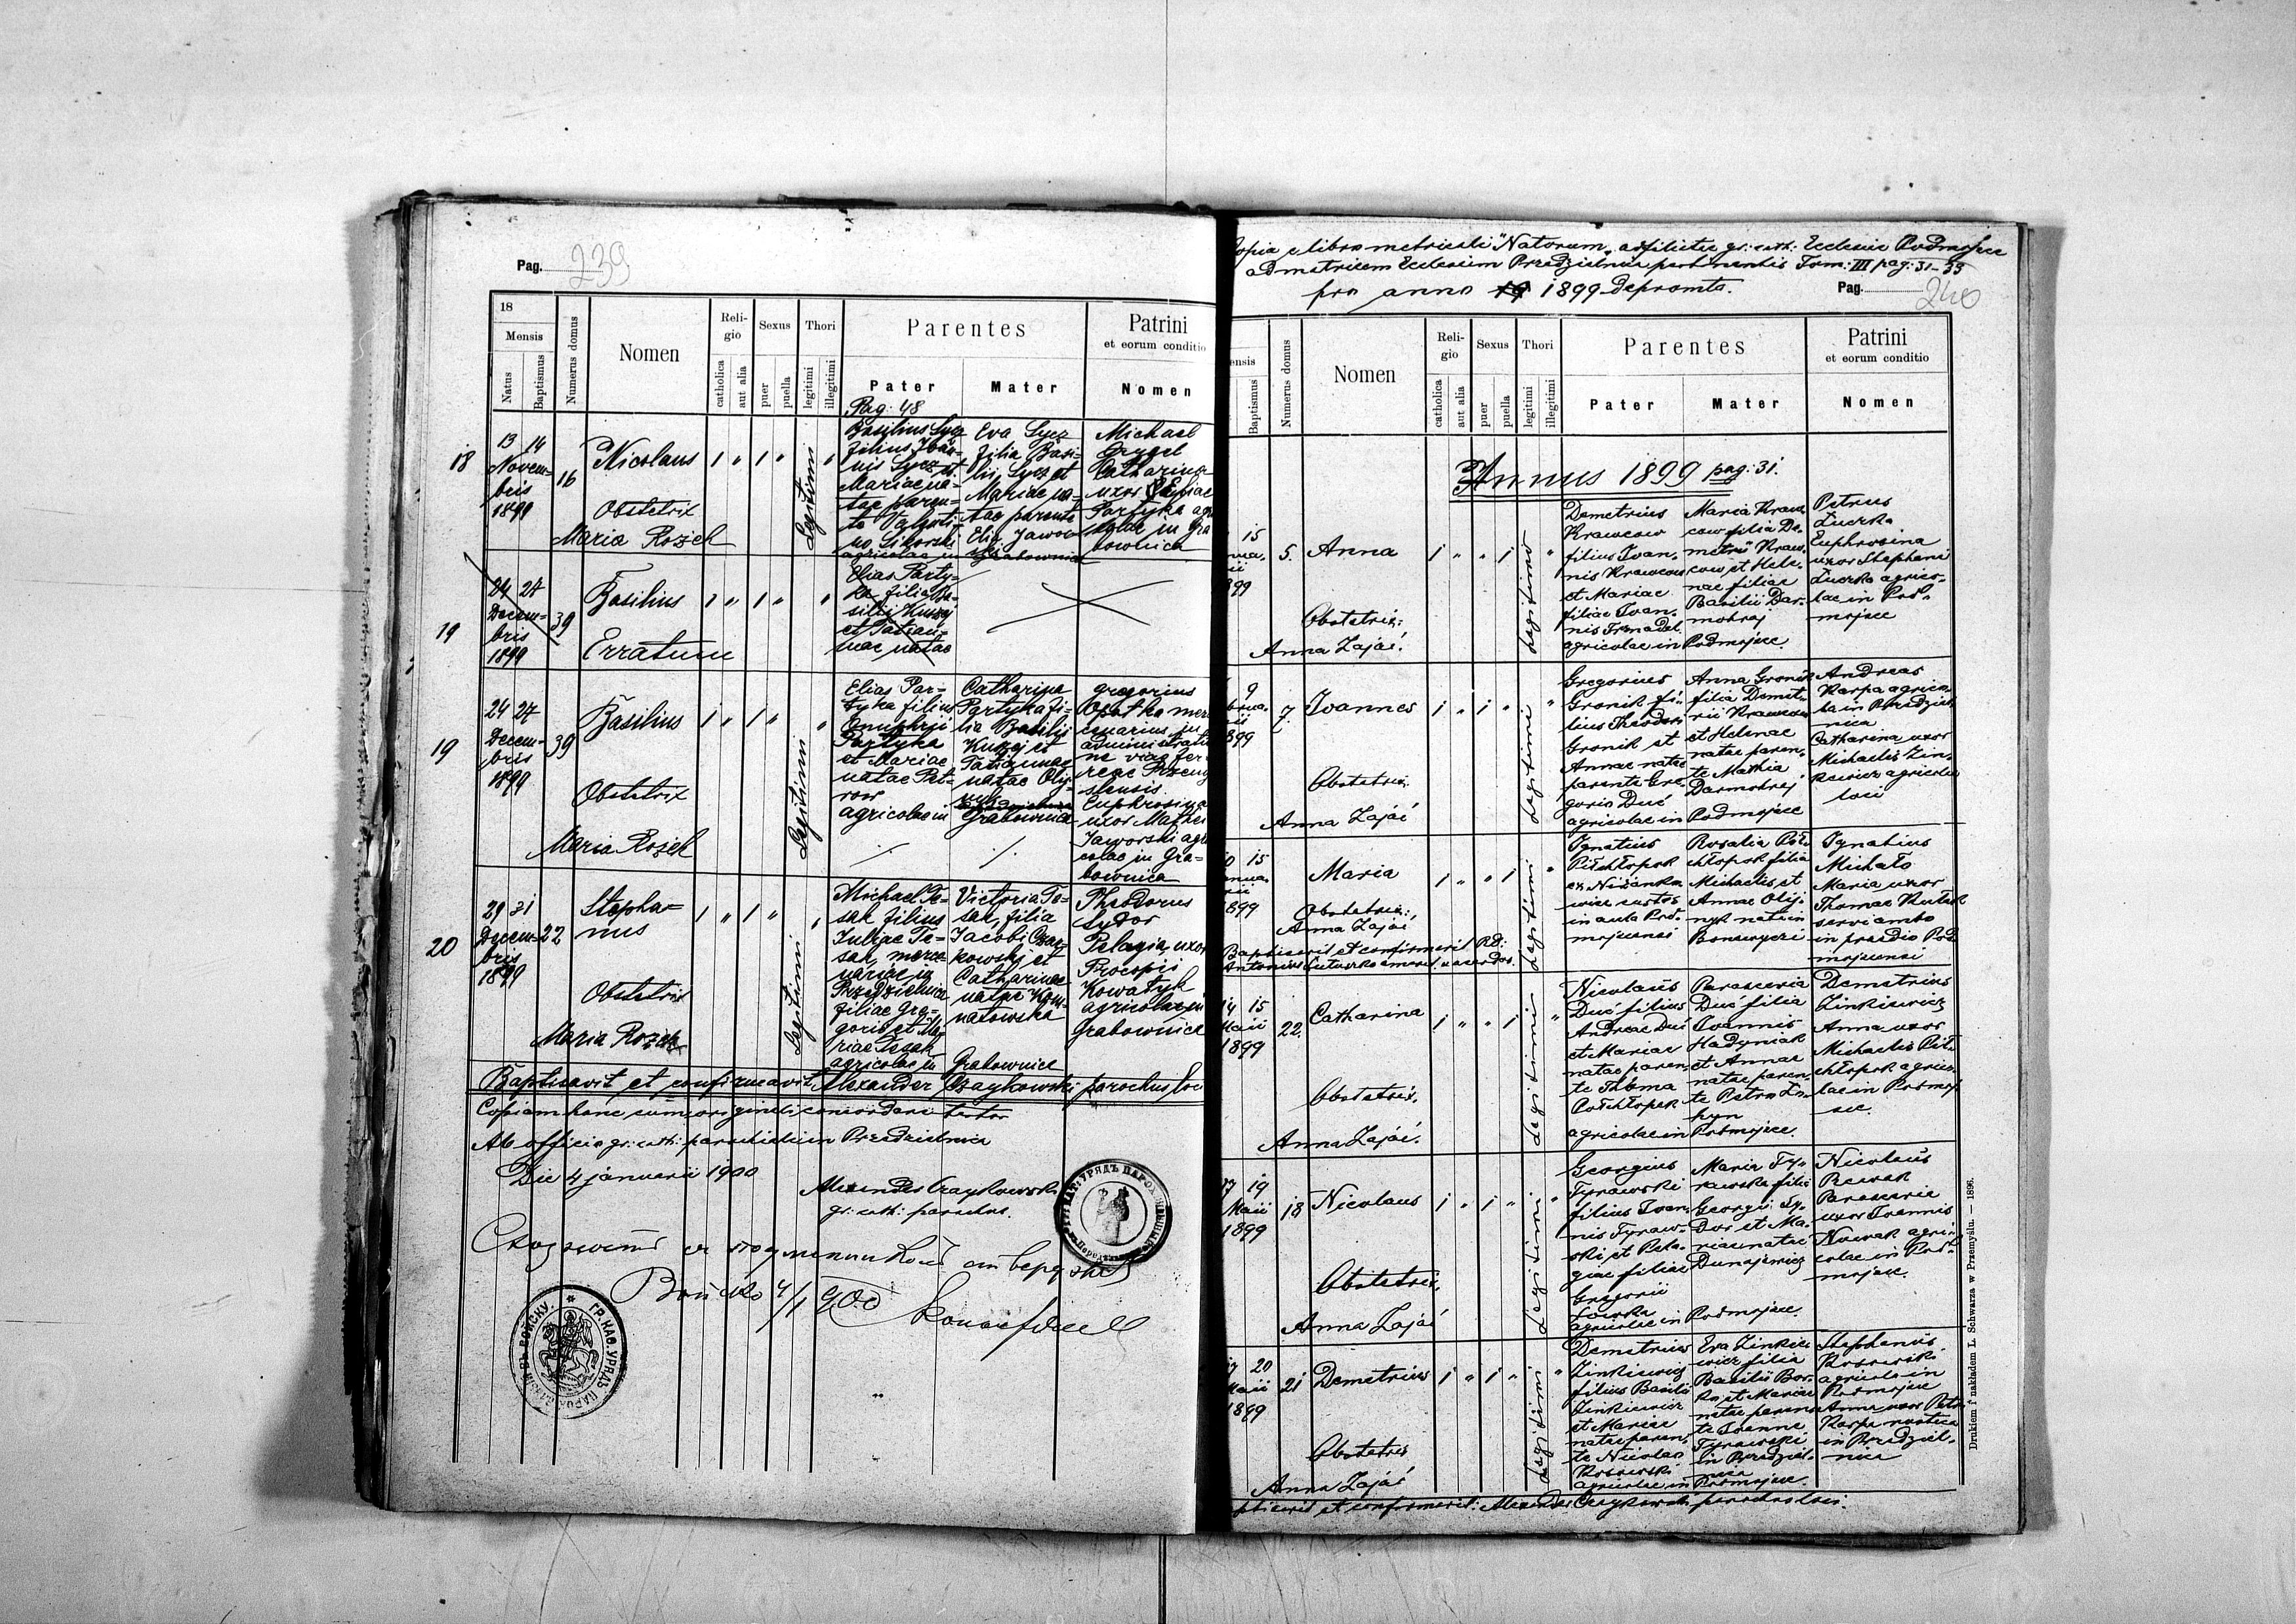 Pag. 239
18
Mensis
Natus
Baptismus
Numerus domus
Nomen
Religio
catholica
aut alia
Sexus
puer
puella
Thori
legitimi
illegitimi
Parentes
Pater
Mater
Patrini
et eorum conditio
Nomen
Pag: 48
18
13 14
Novem-
bris
1899
16
Nicolaus
1 " 1 " "
Obstetrix
Maria Rozek
Legitimi
Basilius Sycz
filius Ioan-
nis Sycz et
Mariae na-
tae paren-
te Valenti-
no Sikorski
agricolae in
Eva Sycz
filia Basi-
lii Sycz et
Mariae na-
tae parente
Elia Jawor-
ski
Grabownica
Michael
Grygel
Catharina
uxor Eliae
Partyka agri-
colae in Gra-
bownica
19
24 27
Decem-
bris
1899
39
Basilius
1 " 1 " "
Erratum
Elias Party-
ka filius Ba-
silii Kuszej
et Tatian-
nae natae
19
24 27
Decem-
bris
1899
39
Basilius
1 " 1 " "
Obstetrix
Maria Rozek
Legitimi
Elias Par-
tyka filius
Onuphrii
Partyka
et Mariae
natae Pet-
row
agricolae in
Catharina
Partyka fi-
lia Basilii
Kuszej et
Tatiannae
natae Olij-
nyk
Grabownica
Gregorius
Opatka mer-
cenarius in
administratio-
ne viae fer-
reae Przemy-
slensis
Euphrosina
uxor Mathei
Jaworski agri-
colae in Gra-
bownica
20
29 31
Decem-
bris
1899
22
Stepha-
nus
1 " 1 " "
Obstetrix
Maria Rozek
Legitimi
Michael Te-
sak filius
Iuliae Te-
sak, merce-
nariae in
Przedzielnica
filiae Gre-
gorii et Ma-
riae Tesak
agricolae in
Victoria Te-
sak, filia
Jacobi Czaj-
kowskj et
Catharinae
natae Kon-
natowska
Grabownice
Theodorus
Sydor
Pelagia, uxor
Procopii
Kowalyk
agricolae in
Grabownice
Baptisavit et confirmavit Alexander Czaykowski parochus loci
Copiam hanc cum originali concordare testor
Ab officio gr: cath: parochiali in Przedzielnica
Die 4 januarii 1900
Alexander Czaykowski
gr: cath: parochus.
Войско 4/1 900
ГР. КАѲ. УРЯДЪ ПАРОХ. ВЪ ВОЙСКУ.
Copia e libro metricali "Natorum" adfilitae gr: cath: Ecclesiae Podmojsce
ad matricem Ecclesiam Przedzielnica pertinentis Tom: III pag: 31-33
pro anno 1899 depromta.
Pag. 240
Mensis
Baptismus
Numerus domus
Nomen
Religio
catholica
aut alia
Sexus
puer
puella
Thori
legitimi
illegitimi
Parentes
Pater
Mater
Patrini
et eorum conditio
Nomen
Annus 1899 pag: 31.
15
1899
5.
Anna
1 " " 1 "
Obstetrix:
Anna Zając.
Legitimi
Demetrius
Krawcow
filius Ioan-
nis Krawcow
et Mariae
filiae Ioan-
agricolae in
Maria Kraw-
cow filia De-
metrii Kraw-
cow et Hele-
nae filiae
Basilii Dar-
mohraj
Podmojsce.
Petrus
Euphrosina
uxor Stephani
agrico-
lae in Pod-
mojsce
9
1899
7.
Ioannes
1 " 1 " "
Obstetrix.
Anna Zając
Legitimi
Gregorius
Gronik fi-
lius Theodori
Gronik et
Annae natae
parente Gre-
gorio Duć
agricolae in
Anna Gronik
filia Demet-
rii Krawcow
et Helenae
natae paren-
te Mathia
Darmohraj
Podmojsce
Andreas
Karpa agrico-
la in Przedziel-
nica
Catharina uxor
Michaelis Zin-
kiewicz agricolae
loci
15
1899
Maria
1 " " 1 "
Obstetrix:
Anna Zając
Baptisavit et confirmavit
Legitimi
Ignatius
Półchłopek
in aula Pod-
Rosalia Pół-
chłopek filia
Michaelis et
Annae Olij-
nyk nata in
Ignatius
Michało
Maria uxor
Thomae
servi ambo
in praedio Pod-
14 15
Maii
1899
22.
Catharina
1 " " 1 "
Obstetrix.
Anna Zając.
Legitimi
Nicolaus
Duć filius
Andreae Duć
et Mariae
natae paren-
te Thoma
Półchłopek
agricolae in
Parascevia
Duć filia
Ioannis
Hadyniak
et Annae
natae paren-
te Petro
Podmojsce.
Demetrius
Zinkiewicz
Anna uxor
Michaelis Pół-
chłopek agrico-
lae in Podmoj-
sce.
17 19
Maii
1899
18
Nicolaus
1 " 1 " "
Obstetrix.
Anna Zając
Legitimi
Georgius
Tyrawski
filius Ioan-
nis Tyraw-
ski et Pela-
giae filiae
Gregorii
agricolae in
Maria Ty-
rawska filia
Georgii Sy-
dor et Ma-
riae natae
Dunajewicz
Podmojsce.
Nicolaus
Parascevia
uxor Ioannis
Nowak agri-
colae in Pod-
mojsce.
17 20
Maii
1899
21
Demetrius
1 " 1 " "
Obstetrix
Anna Zając
Legitimi
Demetrius
Zinkiewicz
filius Basilii
Zinkiewicz
et Mariae
natae paren-
te Nicolao
agricolae in
Eva Zinkie-
wicz filia
Basilii Bor-
et Mariae
natae paren-
te Ioanne
Tyrawski
in Przedziel-
nica
Podmojsce.
Stephanus
agricola in
Podmojsce
Anna uxor Petri
Karpa
in Przedziel-
nica
Baptisavit et confirmavit: Alexander Czaykowski parochus loci.
Drukiem i nakładem L. Schwarza w Przemyślu. — 1896.